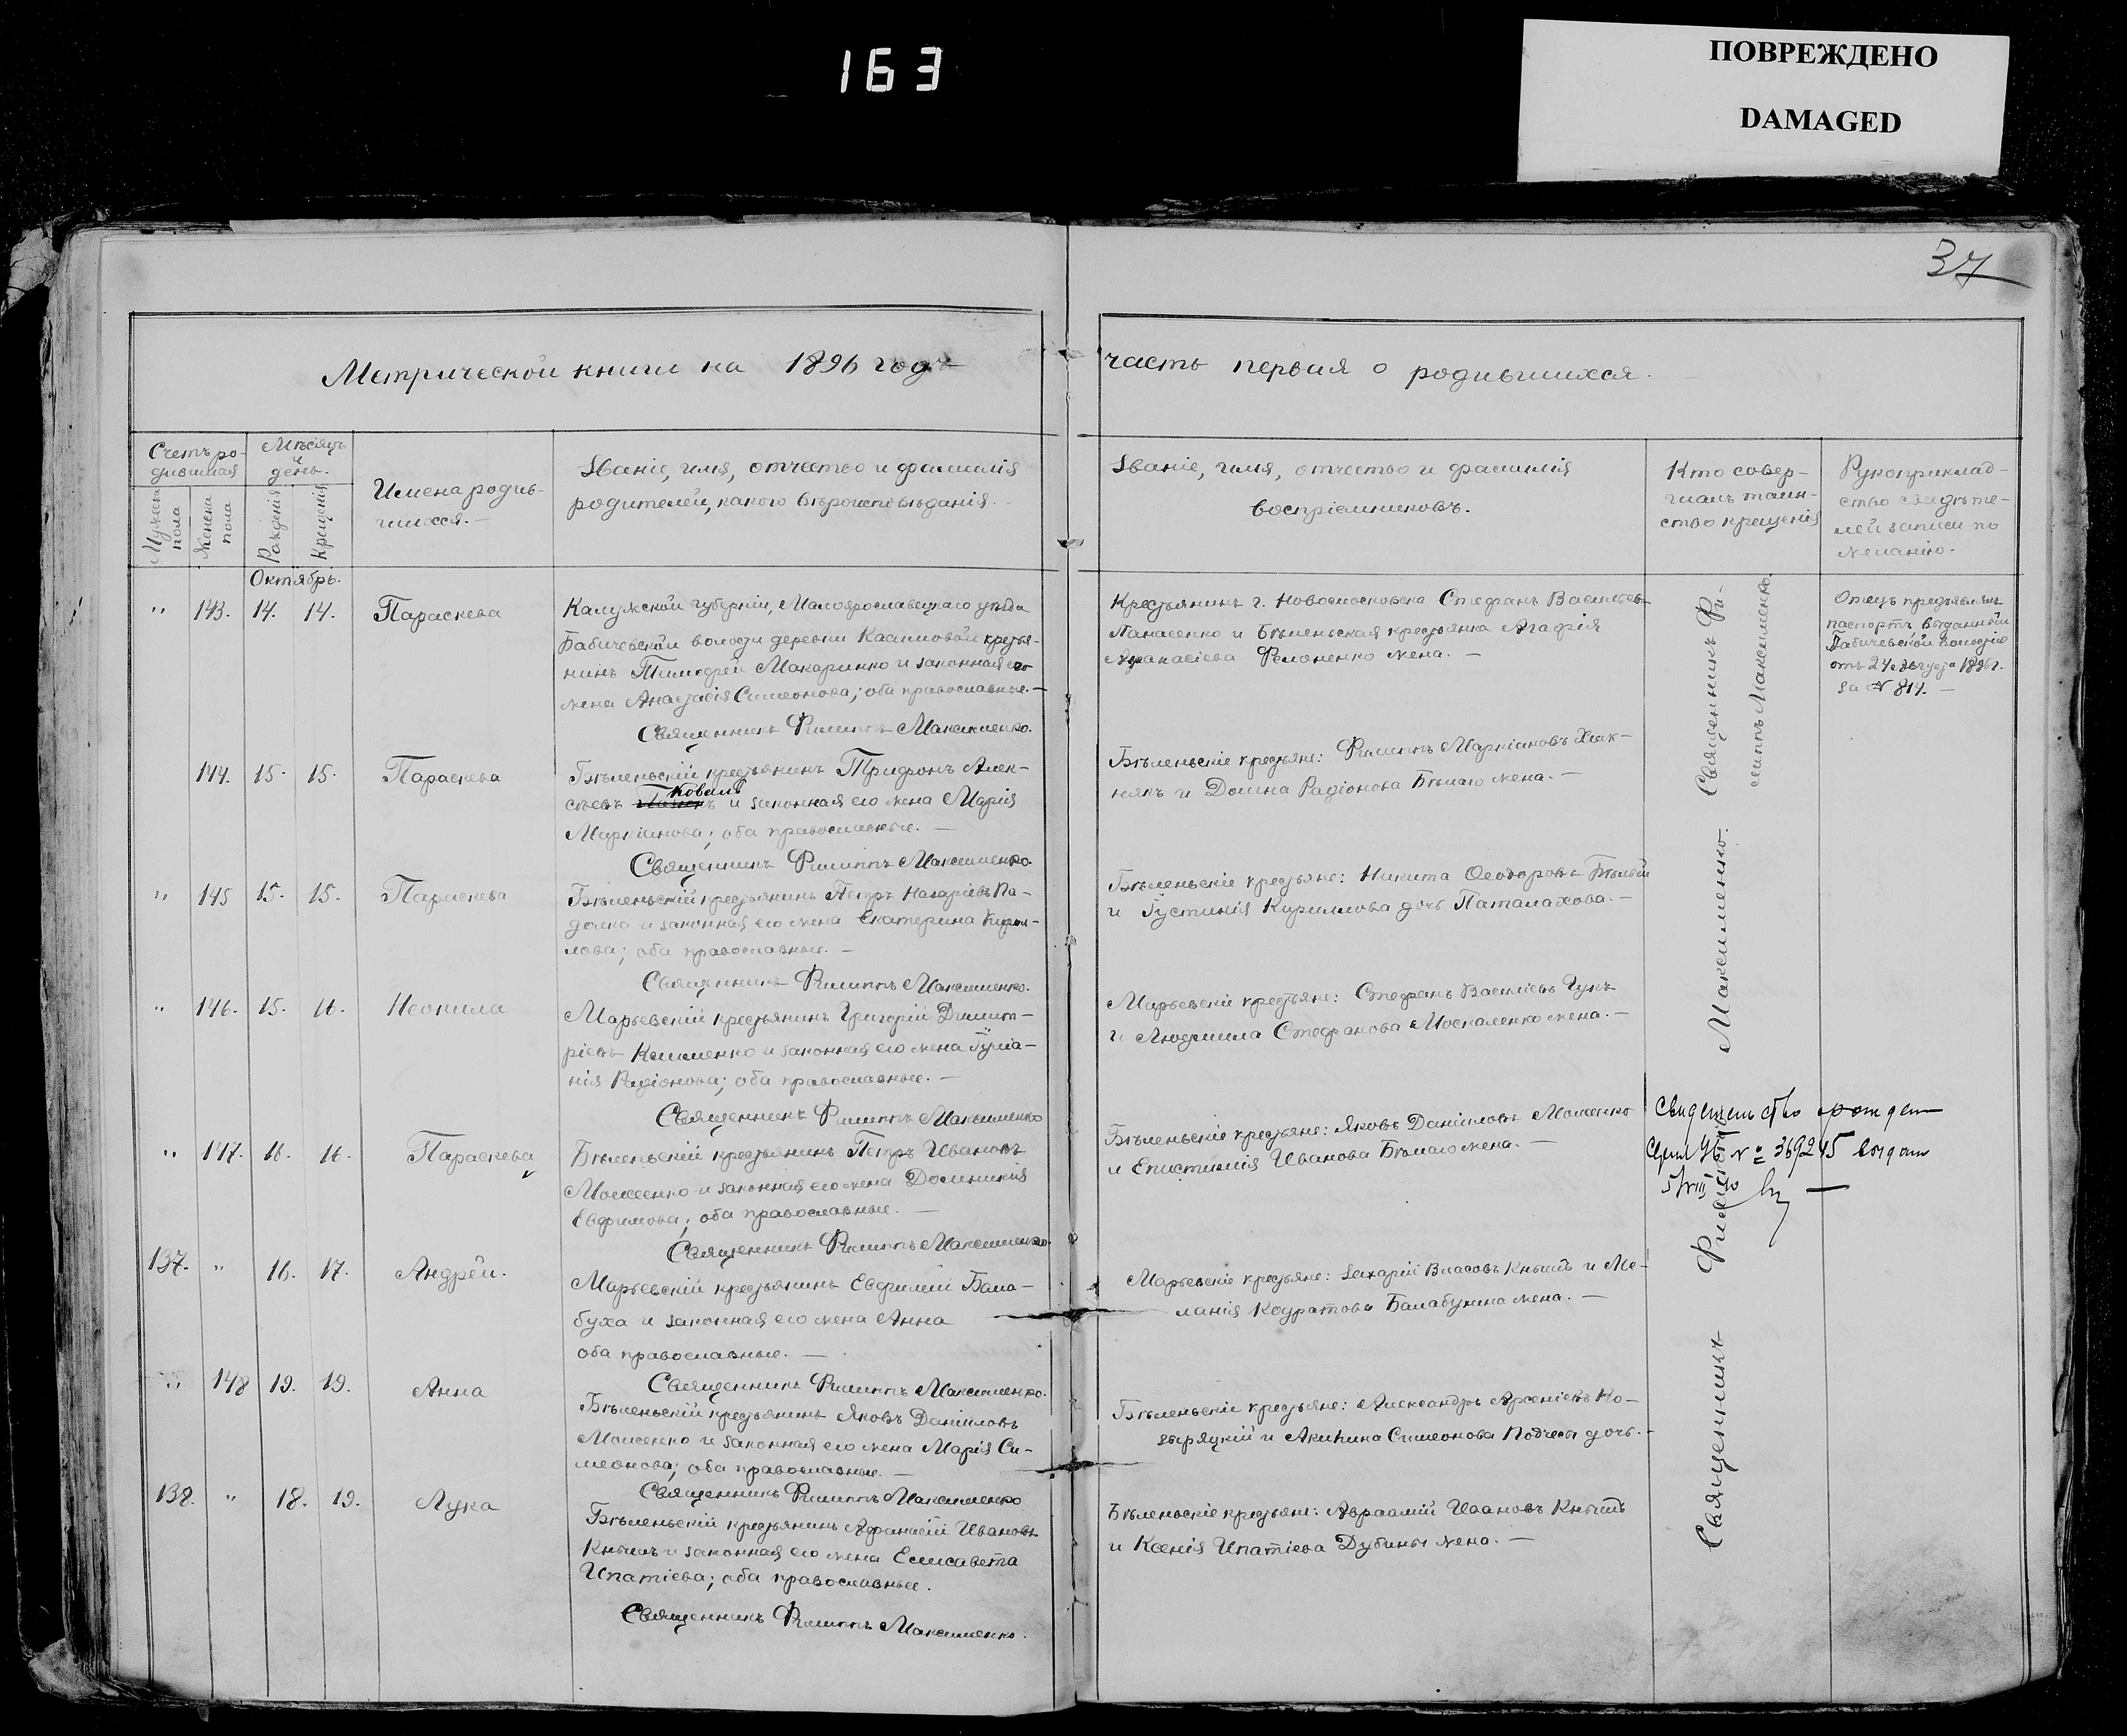 163
ПОВРЕЖДЕНО
DAMAGED
37
Метрической книги на 1896 годъ
часть первая о родившихся.
Счетъ ро-
дившихся
Мѣсяцъ
и
день.
Мужска
пола
Женска
пола
Рожденія
Крещенія
Имена родив-
шихся. —
Званіе, имя, отчество и фамилія
родителей, какого вѣроисповѣданія. —
Званіе, имя, отчество и фамилія
воспріемниковъ.
Кто совер-
шалъ таин-
ство крещенія
Рукоприклад-
ство свидѣте-
лей записи по
желанію.
Октябрь.
" 143. 14. 14. Параскева
Калужской губерніи, Малоярославецкаго уѣзда
Бабичевской волости деревни Касимовой кресть-
нинъ Тимофей Макаринко и законная его
жена Анастасія Симеонова; оба православные. —
Священникъ Филиппъ Максименко.
Крестьянинъ г. Новомосковска Стефанъ Васильевъ
Панасенко и Бѣленьская крестьянка Агафія
Афанасіева Филоненко жена. —
Отецъ предъявилъ
паспортъ выданный
Бабичевской волостію
отъ 24 августа 1896 г.
за № 814. —
144. 15. 15. Параскева
Бѣленьскій крестьянинъ Трифонъ Алек-
сѣевъ Коваль и законная его жена Марія
Маркіанова; оба православные. —
Священникъ Филиппъ Максименко.
Бѣленьскіе крестьяне: Филиппъ Маркіановъ Хиж-
някъ и Домна Радіонова Бѣлаго жена. —
" 145 15. 15. Параскева
Бѣленьскій крестьянинъ Петръ Назаріевъ Па-
далка и законная его жена Екатерина Кирил-
лова; оба православные. —
Священникъ Филиппъ Максименко.
Бѣленьскіе крестьяне: Никита Ѳеодоровъ Бѣлый
и Іустинія Кириллова дочь Паталахова. —
" 146. 15. 16. Неонила
Марьевскій крестьянинъ Григорій Димит-
ріевъ Клименко и законная его жена Іулiа-
нія Радіонова; оба православные. —
Священникъ Филиппъ Максименко
Марьевскіе крестьяне: Стефанъ Василіевъ Гукъ
и Людмила Стефанова Москаленко жена. —
" 147. 16. 16. Параскева
Бѣленьскій крестьянинъ Петръ Ивановъ
Моисенко и законная его жена Домникія
Евфимова; оба православные. —
Священникъ Филиппъ Максименко.
Бѣленьскіе крестьяне: Яковъ Даніиловъ Моисенко
и Епистимія Иванова Бѣлаго жена. —
Свидетельство о рожден
Серия № 369245 выдано
5/VIII
137. " 16. 17. Андрей.
Марьевскій крестьянинъ Евфимій Бала-
буха и законная его жена Анна
оба православные. —
Священникъ Филиппъ Максименко.
Марьевскіе крестьяне: Захарій Власовъ Кнышъ и Ме-
ланія Кодратова Балабухина жена. —
" 148 19. 19. Анна
Бѣленьскій крестьянинъ Яковъ Даніиловъ
Моисенко и законная его жена Марія Си-
меонова; оба православные. —
Священникъ Филиппъ Максименко
Бѣленьскіе крестьяне: Александръ Арсеніевъ Ко-
зыряцкій и Акилина Симеонова дочь. —
138. " 18. 19. Лука
Бѣленьскій крестьянинъ Афанасій Ивановъ
Кнышъ и законная его жена Елисавета
Ипатіева; оба православные.
Священникъ Филиппъ Максименко.
Бѣленьскіе крестьяне: Авраамій Ивановъ Кнышъ
и Ксенія Ипатіева Дубины жена. —
Священникъ Фи-
липпъ Максименко.
Священникъ Филиппъ Максименко.